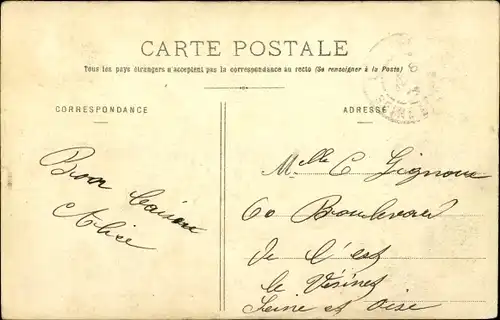 CARTE POSTALE
Tous les pays étrangers n'acceptent pas la correspondance au recto (Se renseigner à la Poste)
CORRESPONDANCE
ADRESSE
Bon baiser
Alice
Melle C Gignoux
60 Boulevard
de l'est
le Vésinet
Seine et Oise